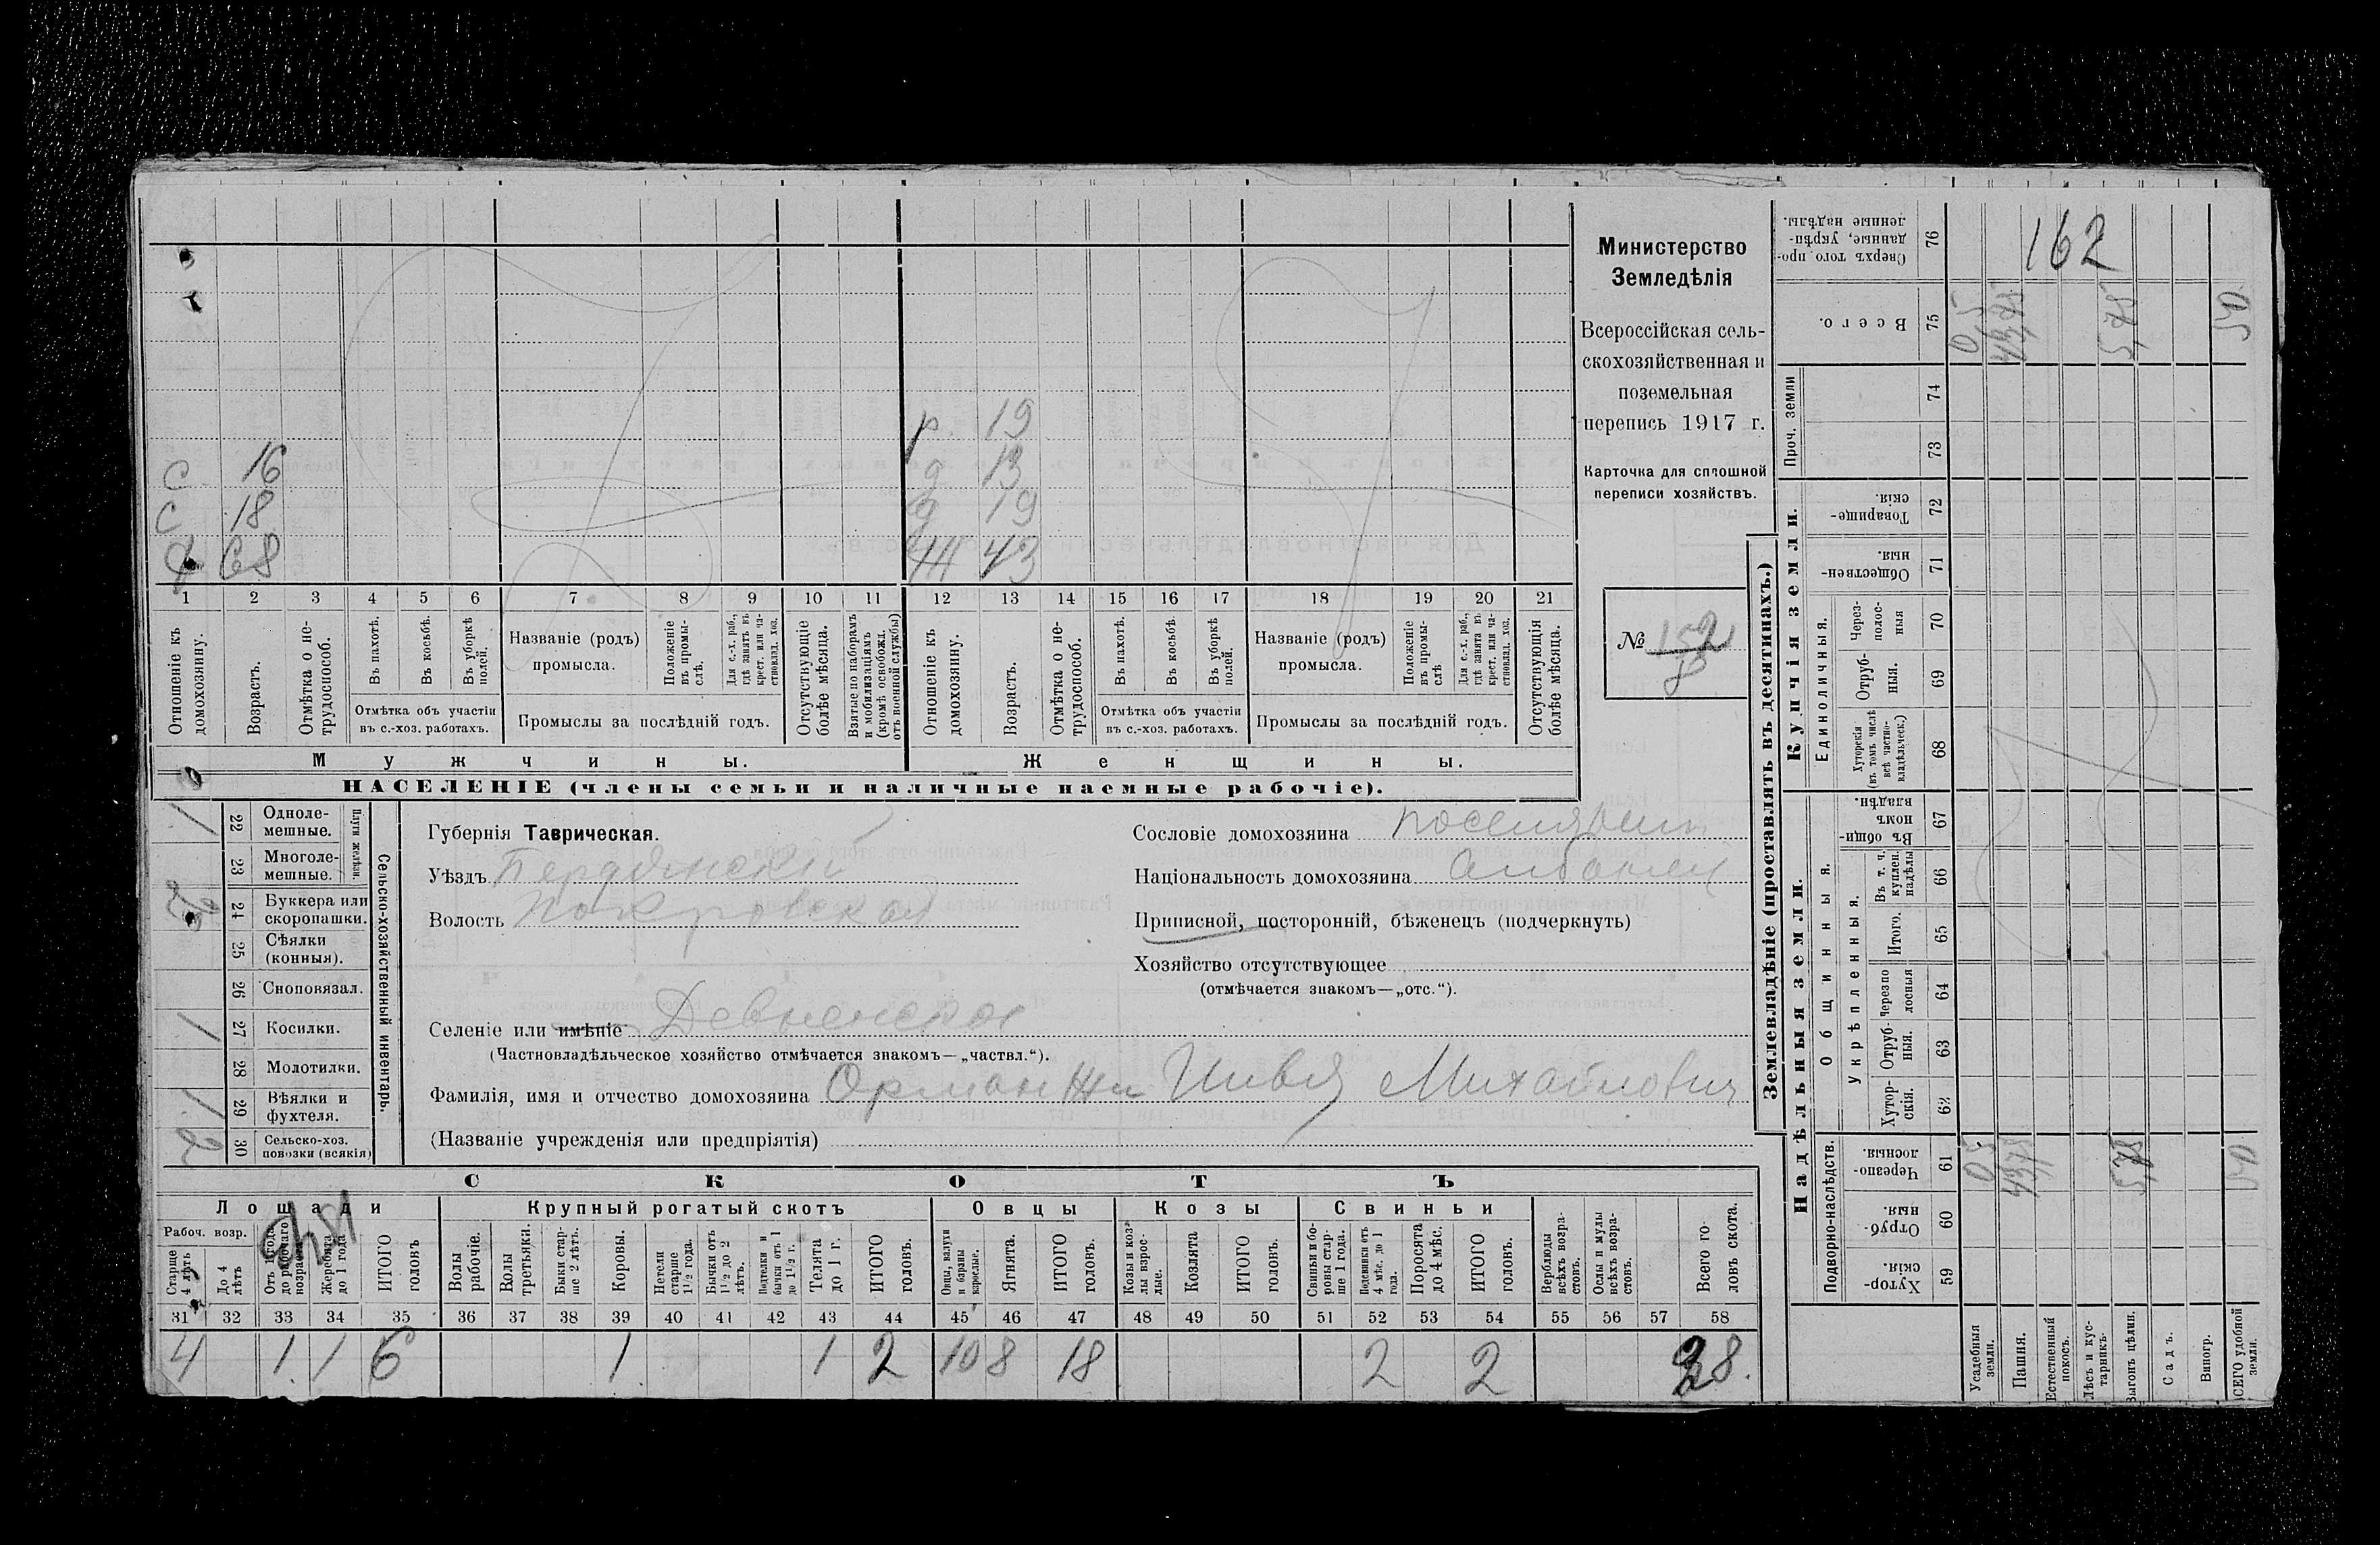 Министерство
Земледѣлія
Всероссійская сель-
скохозяйственная и
поземельная
перепись 1917 г.
Карточка для сплошной
переписи хозяйствъ.
№ 152
р. 19
с 16 д 13
с 18 д 19
68 43
1 2 3 4 5 6 7 8 9 10 11 12 13 14 15 16 17 18 19 20 21
Отношеніе къ домохозяину.
Возрастъ.
Отмѣтка о не-трудоспособ.
Въ пахотѣ.
Въ косьбѣ.
Въ уборкѣ полей.
Отмѣтка объ участіи
въ с.-хоз. работахъ.
Названіе (родъ)
промысла.
Положеніе въ промы-слѣ.
Для с.-х. раб., гдѣ занятъ въ крест. или ча-стновлад. хоз.
Промыслы за послѣдній годъ.
Отсутствующіе болѣе мѣсяца.
Взятые по наборамъ и мобилизаціямъ (кромѣ освобожд. отъ военной службы)
Отношеніе къ домохозяину.
Возрастъ.
Отмѣтка о не-трудоспособ.
Въ пахотѣ.
Въ косьбѣ.
Въ уборкѣ полей.
Отмѣтка объ участіи
въ с.-хоз. работахъ.
Названіе (родъ)
промысла.
Положеніе въ промы-слѣ
Для с.-х. раб., гдѣ занята въ крест. или ча-стновлад. хоз.
Промыслы за послѣдній годъ.
Отсутствующія болѣе мѣсяца.
Мужчины. Женщины.
НАСЕЛЕНІЕ (члены семьи и наличные наемные рабочіе).
Сельско-хозяйственный инвентарь.
Плуги желѣзн.
22 Одноле-мешные. 1
23 Многоле-мешные.
24 Буккера или скоропашки.
25 Сѣялки (конныя).
26 Сноповязал.
27 Косилки. 1
28 Молотилки.
29 Вѣялки и фухтеля. 1
30 Сельско-хоз. повозки (всякія) 2
Губернія Таврическая.
Уѣздъ Бердянский
Волость Покровская
Селеніе или имѣніе Девненское
(Частновладѣльческое хозяйство отмѣчается знакомъ—„частвл.“).
Фамилія, имя и отчество домохозяина Орманжи Михайлович
(Названіе учрежденія или предпріятія)
Сословіе домохозяина поселянин
Національность домохозяина албанец
Приписной, посторонній, бѣженецъ (подчеркнуть)
Хозяйство отсутствующее
(отмѣчается знакомъ—„отс.“).
СКОТЪ
Лошади Крупный рогатый скотъ Овцы Козы Свиньи
Рабоч. возр.
Старше 4 лѣтъ
До 4 лѣтъ
Отъ 1 года до рабочаго возраста
Жеребята до 1 года
ИТОГО головъ
Волы рабочіе.
Волы третьяки.
Быки стар-ше 2 лѣтъ.
Коровы.
Нетели старше 1½ года.
Бычки отъ 1½ до 2 лѣтъ.
Подтелки и бычки отъ 1 до 1½ г.
Телята до 1 г.
ИТОГО головъ.
Овцы, валухи и бараны взрослые.
Ягнята.
ИТОГО головъ.
Козы и коз-лы взрос-лые.
Козлята
ИТОГО головъ.
Свиньи и бо-ровы стар-ше 1 года.
Подсвинки отъ 4 мѣс. до 1 года.
Поросята до 4 мѣс.
ИТОГО головъ.
Верблюды всѣхъ возра-стовъ.
Ослы и мулы всѣхъ возра-стовъ.
Всего го-ловъ скота.
31 32 33 34 35 36 37 38 39 40 41 42 43 44 45 46 47 48 49 50 51 52 53 54 55 56 57 58
4 1 1 6 1 1 2 10 8 18 2 2 28.
Землевладѣніе (проставлять въ десятинахъ.)
Купчія земли.
Надѣльныя земли.
Сверхъ того про-данные, укрѣп-ленные надѣлы. 76 162
Всего. 75 0,5 5,75 50
Проч. земли 74 73
Товарище-скія. 72
Обществен-ныя. 71
Единоличныя.
Через-полос-ныя 70
Отруб-ныя. 69
Хуторскія (въ томъ числѣ всѣ частно-владѣльческ.) 68
Общинныя.
Въ общи-номъ владѣн. 67
Укрѣпленныя.
Въ т. ч. куплен. надѣлы 66
Итого. 65
Черезпо-лосныя 64
Отруб-ныя. 63
Хутор-скія. 62
Подворно-наслѣдств.
Черезпо-лосныя. 61 0,5 5,75 50
Отруб-ныя. 60
Хутор-скія. 59
Усадебныя земли.
Пашня.
Естественный покосъ.
Лѣсъ и кус-тарникъ.
Выгонъ цѣлин.
Садъ.
Виногр.
ВСЕГО удобной земли.